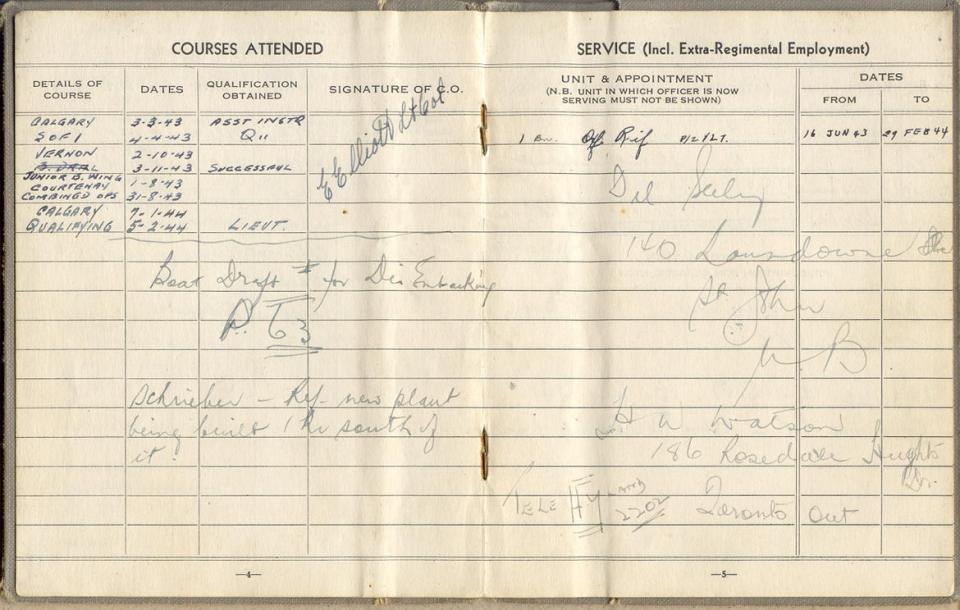 COURSES ATTENDED
DETAILS OF COURSE
DATES
QUALIFICATION OBTAINED
SIGNATURE OF C.O.
CALGARY 3-3-43 ASST INSTR
S OF I 4-4-43 Q11
VERNON 2-10-43
3-11-43 SUCCESSFUL
JUNIOR B. WING
COURTENAY 1-8-43
COMBINED OPS 31-8-43
CALGARY 7-1-44
QUALIFYING 5-2-44 LIEUT.
E Elliott Lt Col
Boat Draft # for Dis Embarking
P. T63
Schrieber - Ref. new plant
being built 1 Mi south of
it.
—4—
SERVICE (Incl. Extra-Regimental Employment)
UNIT & APPOINTMENT
(N.B. UNIT IN WHICH OFFICER IS NOW
SERVING MUST NOT BE SHOWN)
DATES
FROM
TO
1 Bn. Off. Rif P/2/LT. 16 JUN 43 29 FEB 44
Del Seely
140 Lansdowne
St John
N B
H W Watson
186 Rosedale Heights
Dr.
TELE HYLAND 2202 Toronto Ont
—5—